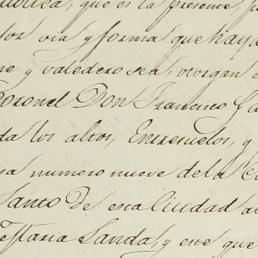 que es la presente
por via y forma que haya
y valedero sea, otorgan
Coronel Don Francisco
los altos, Entresuelos, y
numero nueve de la
Santo de esta Ciudad
Landa, y este que